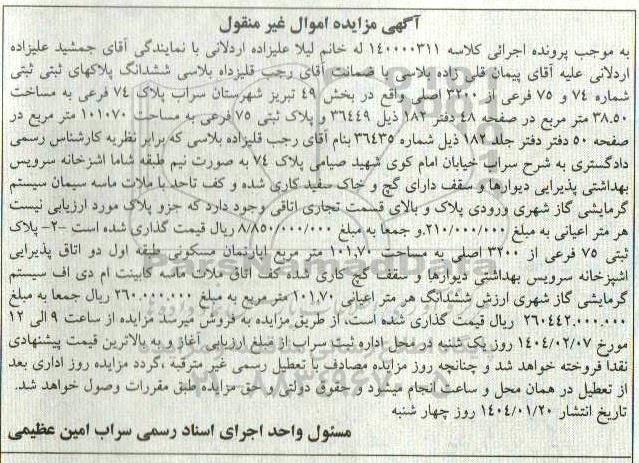 آگهی مزایده اموال غیر منقول
به موجب پرونده اجرائی کلاسه ۱۴۰۰۰۰۳۱۱ له خانم لیلا علیزاده اردلانی با نمایندگی آقای جمشید علیزاده
اردلانی علیه آقای پیمان قلی زاده بلاسی با ضمانت آقای رجب قلیزداه بلاسی ششدانگ پلاکهای ثبتی ثبتی
شماره ۷۴ و ۷۵ فرعی از ۳۲۰۰ اصلی واقع در بخش ۴۹ تبریز شهرستان سراب پلاک ۷۴ فرعی به مساحت
۳۸.۵۰ متر مربع در صفحه ۴۸ دفتر ۱۸۲ ذیل ۳۶۴۴۹ و پلاک ثبتی ۷۵ فرعی به مساحت ۱۰۱.۷۰ متر مربع در
صفحه ۵۰ دفتر دفتر جلد ۱۸۲ ذیل شماره ۳۶۴۳۵ بنام آقای رجب قلیزاده بلاسی که برابر نظریه کارشناس رسمی
دادگستری به شرح سراب خیابان امام کوی شهید صیامی پلاک ۷۴ به صورت نیم طبقه شاما اشزخانه سرویس
بهداشتی پذیرایی دیوارها و سقف دارای گچ و خاک سفید کاری شده و کف تاحد با ملات ماسه سیمان سیستم
گرمایشی گاز شهری ورودی پلاک و بالای قسمت تجاری اتاقی وجود دارد که جزو پلاک مورد ارزیابی نیست
هر متر اعیانی به مبلغ ۲۱۰/۰۰۰/۰۰۰.و جمعا به مبلغ ۸/۸۵۰/۰۰۰/۰۰۰ ریال قیمت گذاری شده است –۲- پلاک
ثبتی ۷۵ فرعی از ۳۲۰۰ اصلی به مساحت ۱۰۱,۷۰ متر مربع اپارتمان مسکونی طبقه اول دو اتاق پذیرایی
اشپزخانه سرویس بهداشتی دیوارها و سقف گچ کاری شده کف اتاق ملات ماسه کابینت ام دی اف سیستم
گرمایشی گاز شهری ارزش ششدانگ هر متر اعیانی ۱۰۱,۷۰ متر مربع به مبلغ ۲۶۰.۰۰۰.۰۰۰ ریال جمعا به مبلغ
۲۶۰۴۴۲.۰۰۰.۰۰۰ ریال قیمت گذاری شده است، از طریق مزایده به فروش میرسد مزایده از ساعت ۹ الی ۱۲
مورخ ۱۴۰۴/۰۲/۰۷ روز یک شنبه در محل اداره ثبت سراب از مبلغ ارزیابی آغاز و به بالاترین قیمت پیشنهادی
نقدا فروخته خواهد شد و چنانچه روز مزایده مصادف با تعطیل رسمی غیر مترقبه ،گردد مزایده روز اداری بعد
از تعطیل در همان محل و ساعت انجام میشود و حقوق دولتی و حق مزایده طبق مقررات وصول خواهد شد.
تاریخ انتشار ۱۴۰۴/۰۱/۲۰ روز چهار شنبه
مسئول واحد اجرای اسناد رسمی سراب امین عظیمی